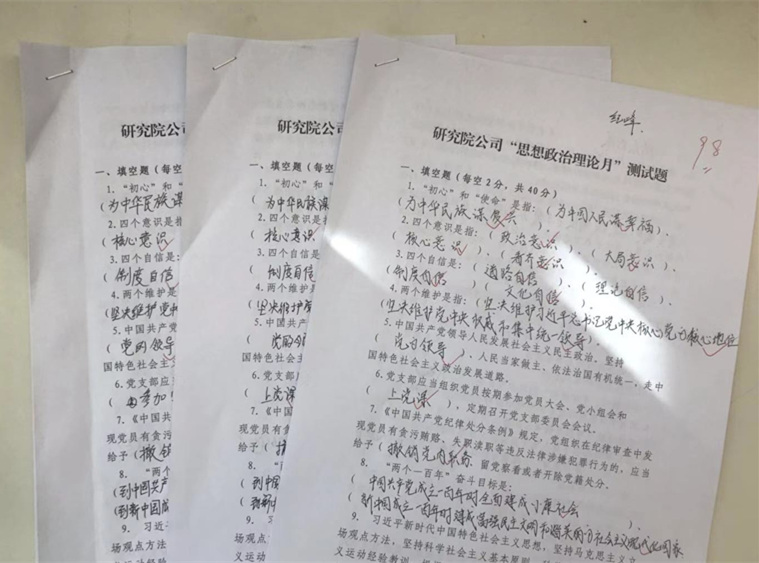 研究院公司
一、填空题（每空
1. “初心”和“
（为中华民族谋
2.四个意识是指
（核心意识
3.四个自信是：
（制度自信
4.两个维护是指
（坚决维护党中
5.中国共产党
（党的领导
国特色社会主
6.党支部应
7.《中国共
现党员有贪污
给予（撤销
8. “两个
（到中国共产
（到新中国成
9. 习近
场观点方法，
研究院公
一、填空题（每
1. “初心”和
（为中华民族
2.四个意识是
（核心意识
3.四个自信
（制度自信
4.两个维护
（坚决维护
5.中国共产
国特色社会
6.党支部
（上党课
7.《中国
现党员有贪
给予（
8. “两
（到中国
9. 习
场观点方
98
研究院公司“思想政治理论月”测试题
一、填空题（每空2分，共40分）
1. “初心”和“使命”是指：（为中国人民谋幸福）、
（为中华民族谋复兴）
2.四个意识是指：（政治意识）、（大局意识）、
（核心意识）、（看齐意识）
3.四个自信是：（道路自信）、（理论自信）、
（制度自信）、（文化自信）
4.两个维护是指：（坚决维护习近平总书记党中央核心党的核心地位
（坚决维护党中央权威和集中统一领导）。
5.中国共产党领导人民发展社会主义民主政治，坚持
（党的领导）、人民当家做主、依法治国有机统一，走中
国特色社会主义政治发展道路。
6.党支部应当组织党员按期参加党员大会、党小组会和
（上党课），定期召开党支部委员会会议。
7.《中国共产党纪律处分条例》规定，党组织在纪律审查中发
现党员有贪污贿赂、失职渎职等违反法律涉嫌犯罪行为的，应当
给予（撤销党内职务、留党察看或者开除党籍处分。
8. “两个一百年”奋斗目标是：
（中国共产党成立一百年时全面建成小康社会）、
（新中国成立一百年时建成富强民主文明和谐美的社会主义现代化国家
9. 习近平新时代中国特色社会主义思想，坚持马克思主义立
场观点方法，坚持科学社会主义基本原则，